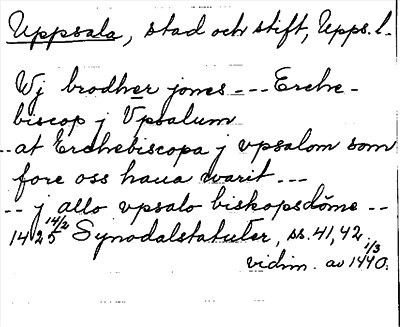 Uppsala, stad och stift, Upps. l.
Wj brodher jones --- Erche-
biscop j Vpsalum
-- at Erchebiscopa j vpsalom som
fore oss haua warit ---
-- j allo vpsalo biskopsdöme --
1425 14/2 Synodalstatuter, ss. 41, 42.
vidim. av 1440 1/3.